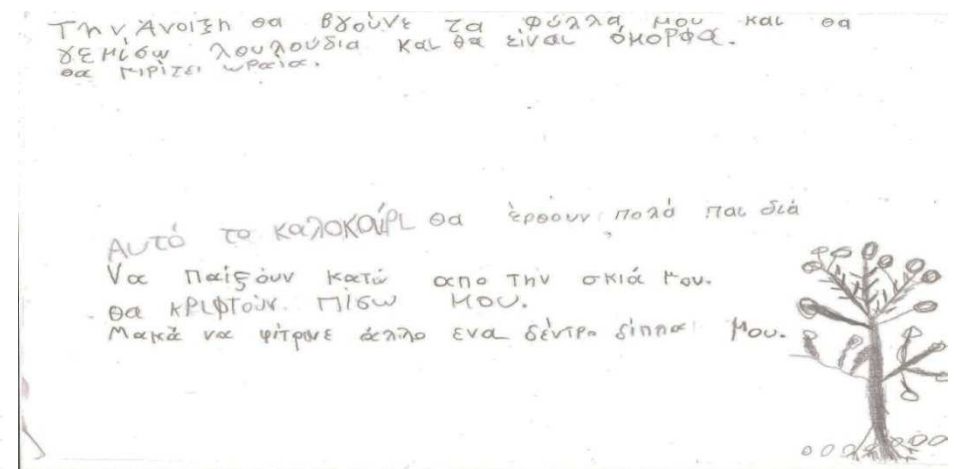 Την Άνοιξη θα βγούνε τα φύλλα μου και θα
γεμίσω λουλούδια και θα είναι όμορφα.
θα μιρίζει ωραία.
Αυτό το καλοκαίρι θα έρθουν πολά παιδιά
να παίξουν κατώ απο την σκιά μου.
θα κριφτούν πίσω μου.
Μακά να φίτρωνε άλλο ενα δέντρο δίππα μου.